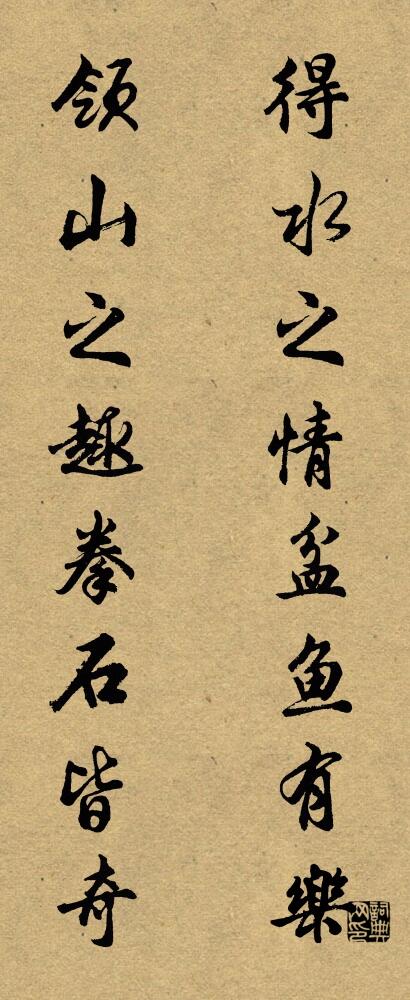 得水之情盆鱼有樂
领山之趣拳石皆奇
詞典网印